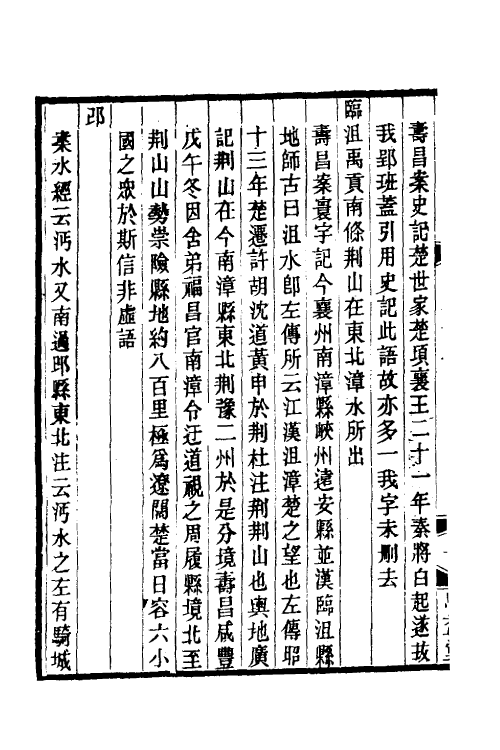 壽昌案史記楚世家楚頃襄王二十一年秦將白起遂拔
我郢班蓋引用史記此語故亦多一我字未刪去
臨沮禹貢南條荆山在東北漳水所出
壽昌案寰宇記今襄州南漳縣峽州遠安縣並漢臨沮縣
地師古曰沮水卽左傳所云江漢沮漳楚之望也左傳昭
十三年楚遷許胡沈道黃申於荆杜注荆荆山也輿地廣
記荆山在今南漳縣東北荆豫二州於是分境壽昌咸豐
戊午冬因舍弟福昌官南漳令迂道視之周履縣境北至
荆山山勢崇險縣地約八百里極爲遼闊楚當日容六小
國之衆於斯信非虛語
邔
案水經云沔水又南過邔縣東北注云沔水之左有騎城